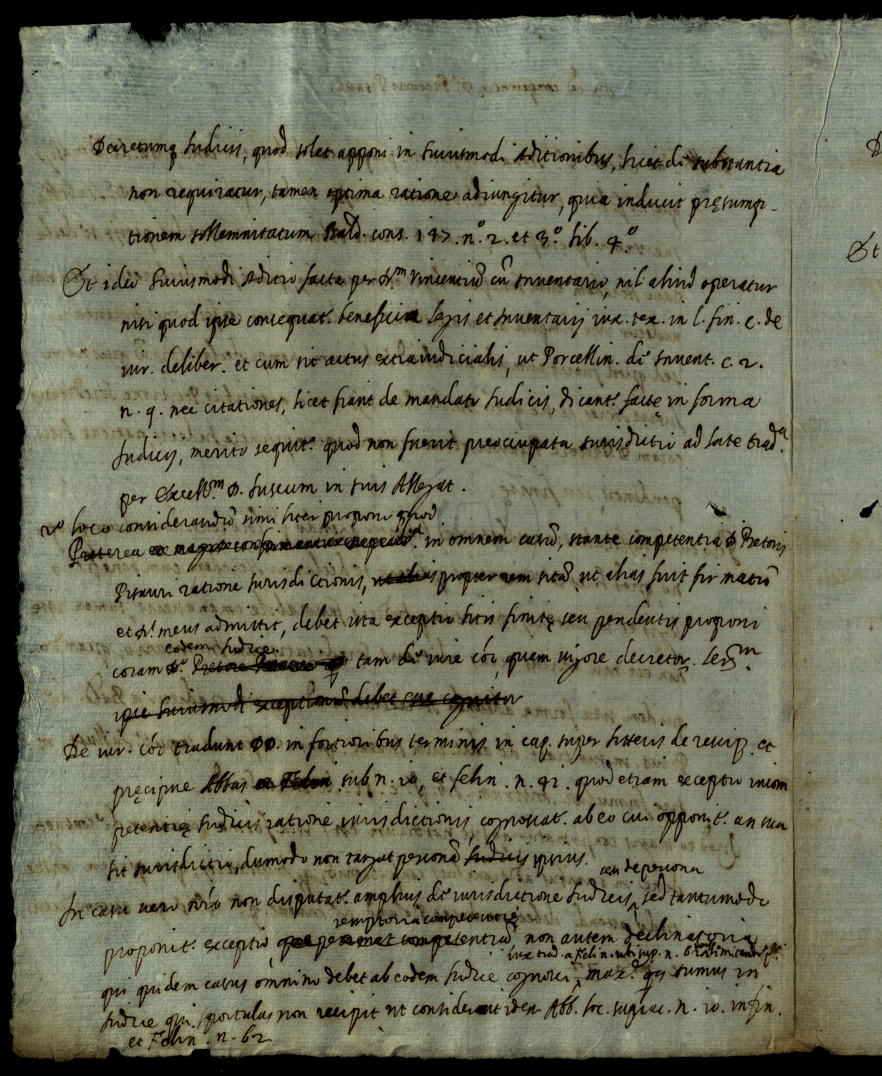 Decretumq Judicij, quod solet apponi in huiusmodi Aditionibus, licet de substantia
non requiratur, tamen optima ratione adiungitur, quia inducit pręsump-
tionem sollemnitatum Bald. cons. 147. n.º 2. et 3.º lib. 4.º
Et ideo huiusmodi Aditio facta per D.m Vincentiū cū Inventario, nil aliud operatur
nisi quod ipse consequat. beneficiū legis et Inventarij iux. tex. in l. fin. c. de
iur. deliber. et cum sit actus extraiudicialis, ut Porcellin. de Invent. c. 2.
n. 9. nec citationes, licet fiant de mandato Judicis, dicant. factę in forma
Judicij, merito sequit. quod non fuerit preoccupata Jurisdictio ad late trad.a
per Excell.m D. Tuscum in suis Allegat.
2.º loco considerandū similiter proponi quod
Preterea in omnem casū, stante competentia D. Pretoris
Pisauri ratione Jurisdictionis, ut alias propter rem sitā, ut alias fuit firmatū
et D. meus admittit, debet ista exceptio litis finitę seu pendentis proponi
eodem Judice
coram D.º Pretore tam de iure cōi, quam vigore decretor. Ser.m
ipse huiusmodi exceptionū debet esse cognitor
De iur. cōi tradunt DD. in fortioribus terminis in cap. super litteris de rescrip. et
pręcipue Abbas et Felin sub n. 10, et Felin. n. 41. quod etiam exceptio incom
petentię Judicis ratione iurisdictionis cognoscat. ab eo cui opponit. an sua
sit Jurisdictio, dumodo non tangat personā Judicis ipsius.
seu de persona
In casu vero nr̄o non disputat. amplius de iurisdictione Judicis, sed tantumodo
remptoria competentię
proponit. exceptio, que perimat competentiā, non autem declinatoria
iux. trad. a Felin. ubi sup. n.
qui quidem casus omnino debet ab eodem Judice cognosci, sumus in
Judice qui sportulas non recipit ut considerat idem Abb. loc. n. 10. in fin.
et Felin. n. 62